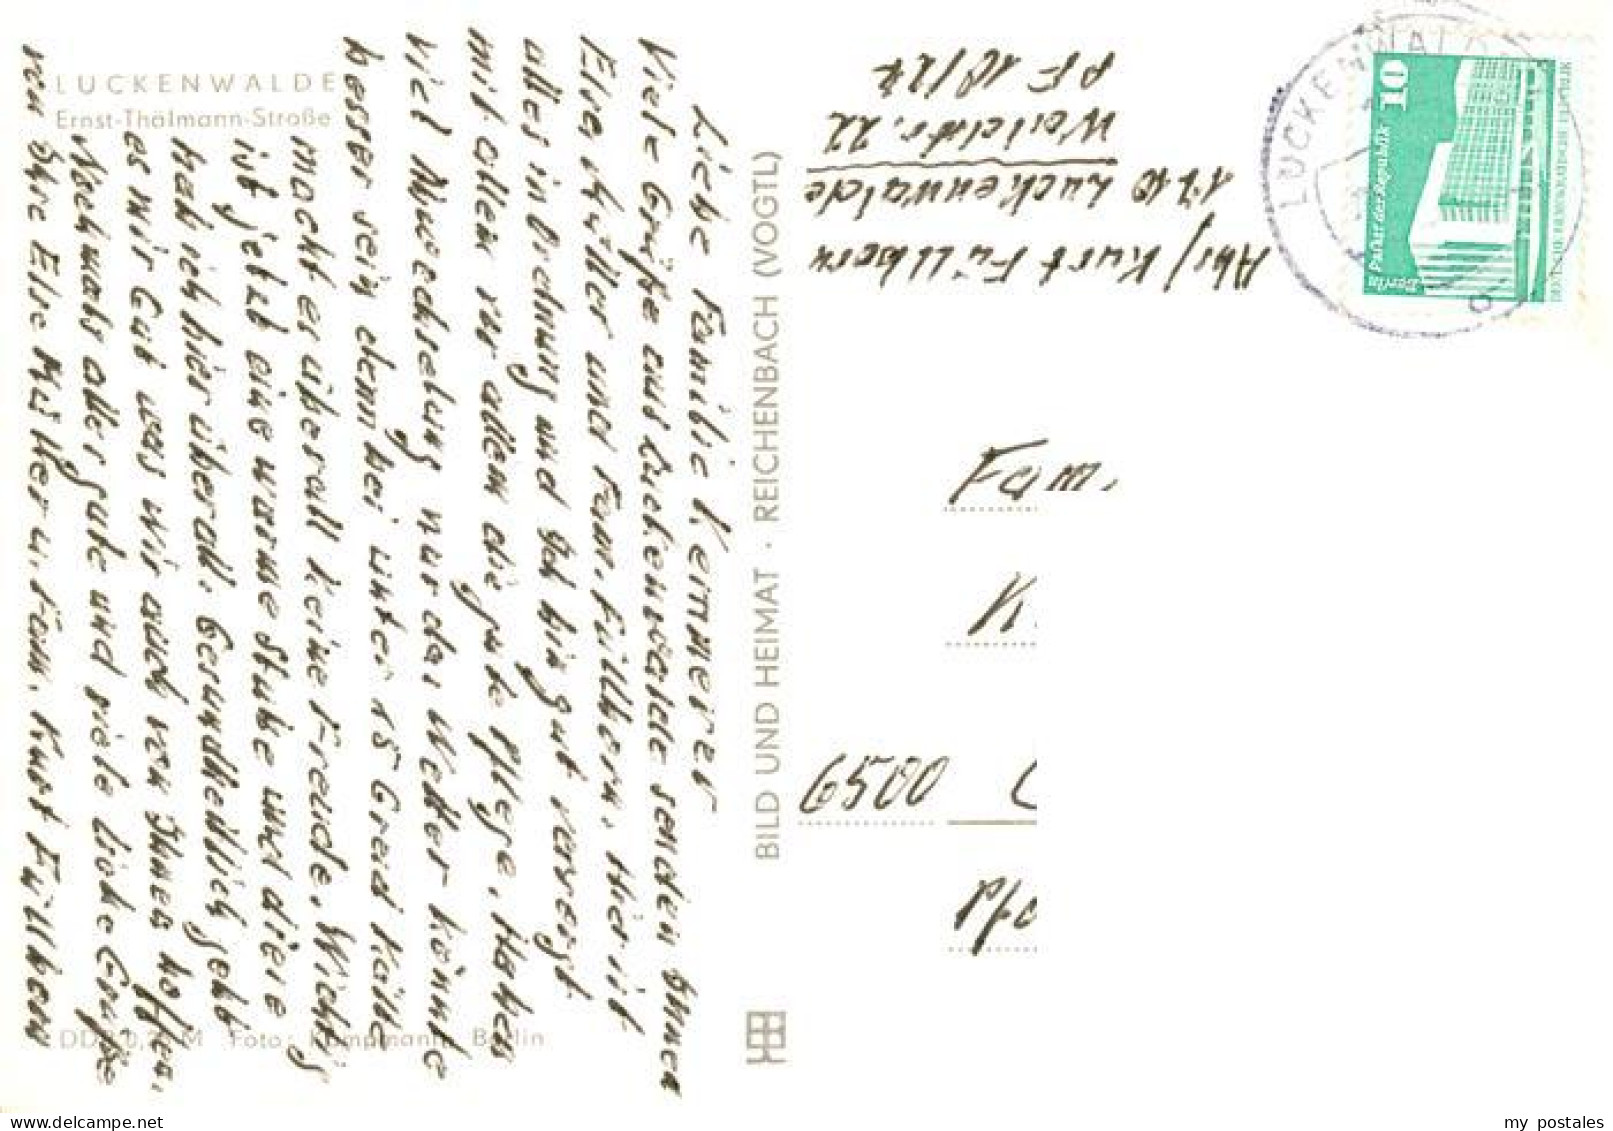 LUCKENWALDE
Ernst-Thälmann-Straße
Liebe Familie Kemmeier
Viele Grüße aus Luckenwalde senden Ihnen
Elsa Müller und Fam. Füllborn. Hier ist
alles in Ordnung und Ich bin gut versorgt
mit allem vor allem die gute Pflege. Haben
viel Abwechselung nur das Wetter könnte
besser sein denn bei unter 15 Grad Kälte
macht es überall keine Freude. Wichtig
ist jetzt eine warme Stube und diese
hab ich hier überall. Gesundheitlich geht
es mir Gut was wir auch von Ihnen hoffen.
Nochmals alles gute und viele liebe Grüße
von Ihre Else Müller u. Fam. Kurt Füllborn
DDR 0,20 M Foto: Kampmann, Berlin
BILD UND HEIMAT · REICHENBACH (VOGTL)
Abs/ Kurt Füllborn
1710 Luckenwalde
Weichstr. 22
PF 18/27
LUCKENWALDE
10
Palast der Republik
Berlin
DEUTSCHE DEMOKRATISCHE REPUBLIK
Fam.
K
6500 G
Pfo
my postales